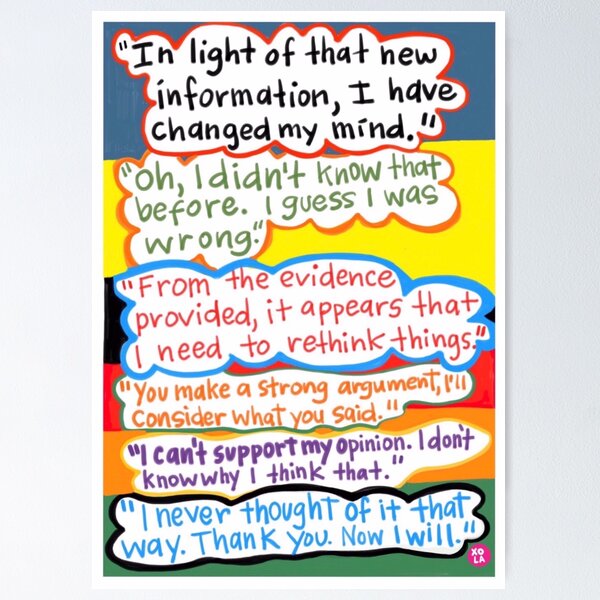 "In light of that new
information, I have
changed my mind."
"Oh, I didn't know that
before. I guess I was
wrong."
"From the evidence
provided, it appears that
I need to rethink things."
"You make a strong argument, I'll
Consider what you said."
"I can't support my opinion. I don't
know why I think that."
"I never thought of it that
way. Thank you. Now I will."
XO
LA